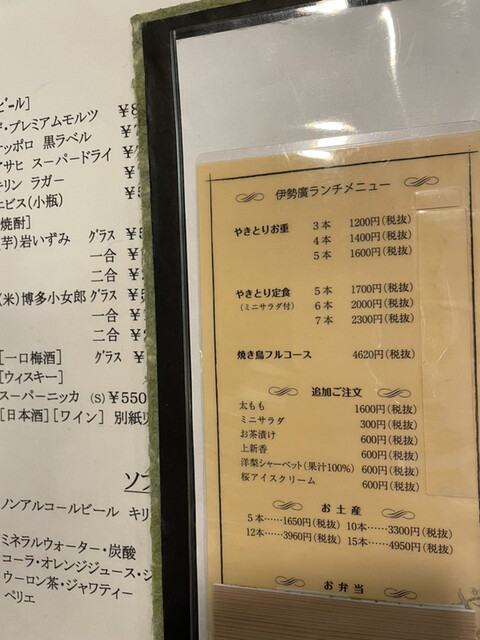 ビール]
ザ・プレミアムモルツ
サッポロ 黒ラベル
アサヒ スーパードライ
キリン ラガー
エビス(小瓶)
[焼酎]
(芋)岩いずみ グラス
一合
二合
(米)博多小女郎 グラス
一合
二合
[一口梅酒] グラス
[ウィスキー]
スーパーニッカ (S) ¥550
[日本酒][ワイン] 別紙
ソフ
ノンアルコールビール キリ
ミネラルウォーター・炭酸
コーラ・オレンジジュース・ジ
ウーロン茶・ジャワティー
ペリエ
伊勢廣ランチメニュー
やきとりお重 3本 1200円(税抜)
4本 1400円(税抜)
5本 1600円(税抜)
やきとり定食 5本 1700円(税抜)
(ミニサラダ付) 6本 2000円(税抜)
7本 2300円(税抜)
焼き鳥フルコース 4620円(税抜)
追加ご注文
太もも 1600円(税抜)
ミニサラダ 300円(税抜)
お茶漬け 600円(税抜)
上新香 600円(税抜)
洋梨シャーベット(果汁100%) 600円(税抜)
桜アイスクリーム 600円(税抜)
お土産
5本……1650円(税抜) 10本……3300円(税抜)
12本……3960円(税抜) 15本……4950円(税抜)
お弁当